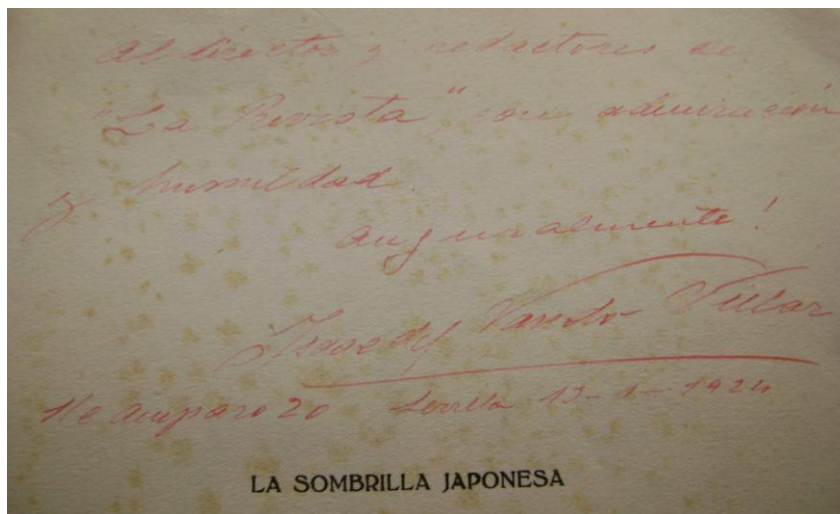 Al director y redactores de
"La Revista" con admiración
y humildad
auguralmente!
Isaac del Vando Villar
s/c Amparo 20 Sevilla 13-1-1924
LA SOMBRILLA JAPONESA